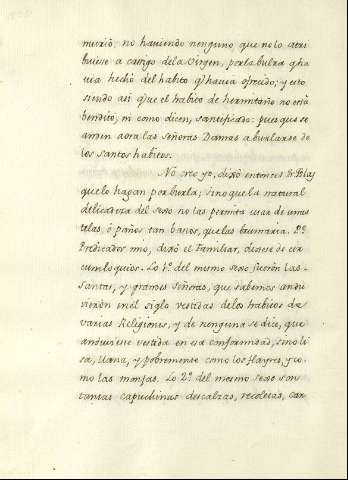 murió; no haviendo nenguno, que no lo atri
buiese a castigo dela Virgen, por la burla q.e ha
via hecho del habito q.e havia ofrecido; y esto
siendo asi q.e ue el habito de hermitaño no está
bendito; ni como dicen, santificado: pues que se
anden aora las Señoras Damas aburlarse de
los santos habitos.
No creo yo, dixo entonces Fr. Blas
que lo hagan por burla; sino que la natural
delicadeza del sexo no las permita usar de unas
telas, ó paños tan bastos, que las brumaria. P.e
Predicador mio, dixo el Familiar, dexese de cir
cumloquios. Lo 1.º del mismo sexo fueron las
Santas, y grandes Señoras, que sabemos andu
vieron en el siglo vestidas delos habitos de
varias Religiones, y de nenguna se dice, que
anduviese vestida en esa conformidad; sino li
sa, llana, y pobremente como los flayres, y co
mo las monjas. Lo 2.º del mesmo sexo son
tantas capuchinas descalzas, recoletas, car